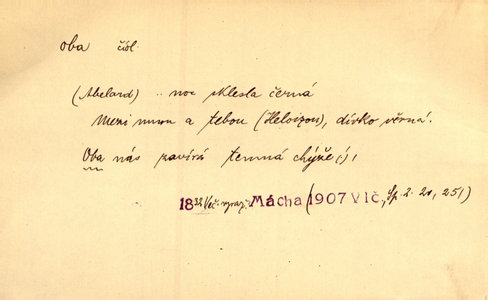 oba čísl.
(Abelard) .. noc sklesla černá
Mezi mnou a tebou (Heloizou), dívko věrná.
Oba nás zavírá temná chýže(;),
1832 Več. Mácha (1907 Vlč, Sp. 2. 20, 251)